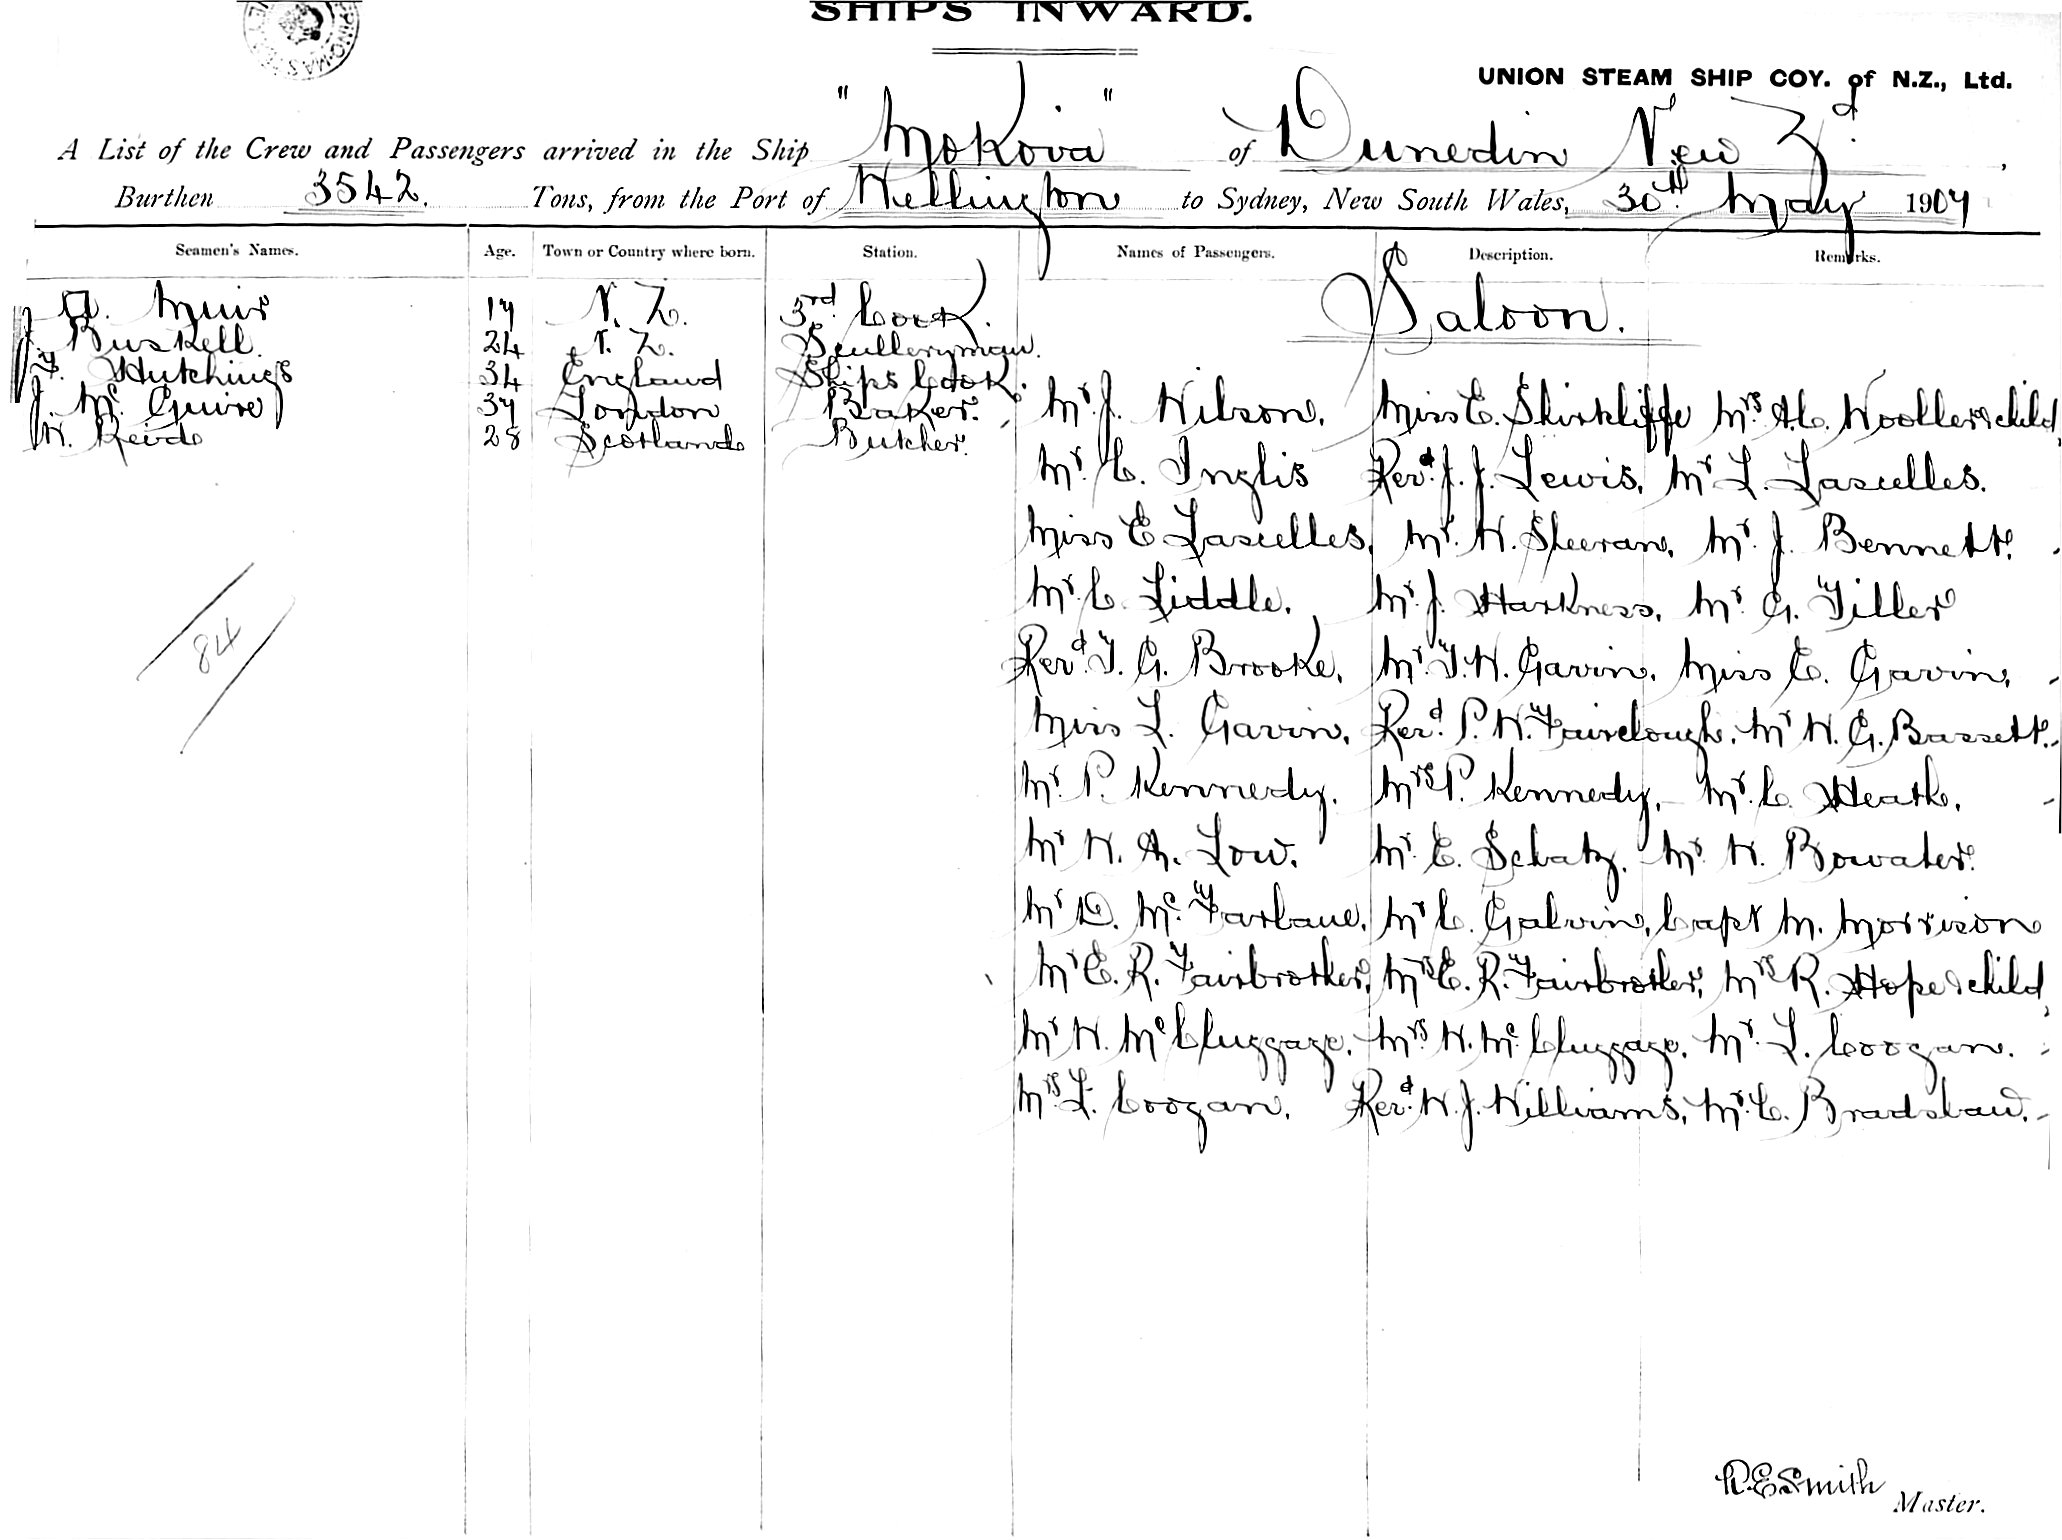 SHIPS INWARD.
UNION STEAM SHIP COY. of N.Z., Ltd.
A List of the Crew and Passengers arrived in the Ship "Mokoia" of Dunedin New Zd.
Burthen 3542. Tons, from the Port of Wellington to Sydney, New South Wales, 30th May 1907
Seamen's Names. Age. Town or Country where born. Station. Names of Passengers. Description. Remarks.
Saloon.
Muir 17 N. Z. 3rd Cook.
J. Buskell 24 N. Z. Sculleryman.
Hutchings 34 England Ships Cook.
J. McGuire 37 London Baker.
W. Reid 28 Scotland Butcher.
84
Mr. J. Wilson, Miss E. Shirtcliffe Mrs A.C. Wooller & child,
Mr. C. Inglis Revd. J. J. Lewis, Mr L. Lascelles.
Miss E Lascelles, Mr. W. Sheeran, Mr. J. Bennett.
Mr. C. Liddle, Mr. J. Harkness, Mr. G. Tiller
Revd. T. G. Brooke, Mr. T. W. Gavin, Miss E. Gavin,
Miss L. Gavin, Revd. P. W. Fairclough, Mr W. G. Bassett.
Mr. P. Kennedy, Mrs P. Kennedy, Mr. C. Heath,
Mr W. A. Low. Mr. E. Schatz, Mr. W. Bowater.
Mr D. McFarlane, Mr C. Galvin, Capt M. Morrison
Mr E. R. Fairbrother, Mrs E. R. Fairbrother, Mrs R. Hope & child,
Mr W. McCluggage, Mrs W. McCluggage, Mr. L. Coogan.
Mrs L. Coogan, Revd. W. J. Williams, Mr. C. Bradshaw.
Smith Master.